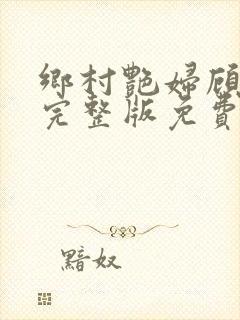 鄉村艷婦顧
完整版免費
黯奴